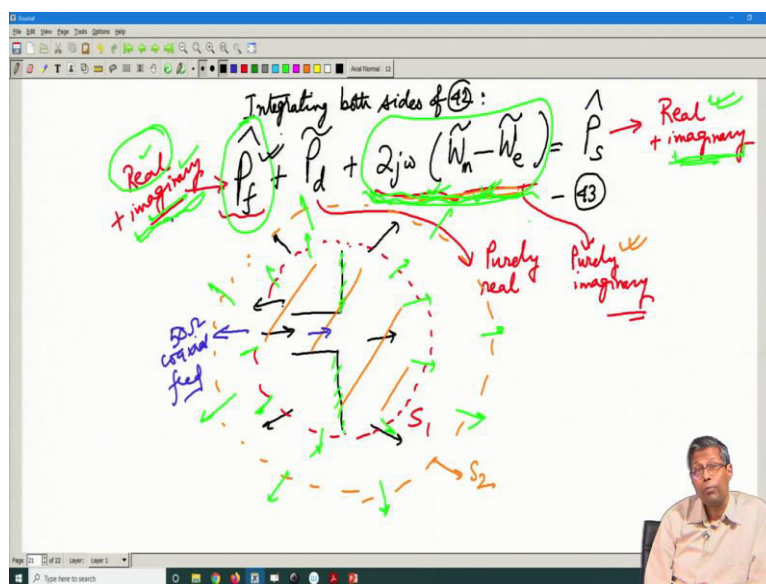 Journal
File Edit View Page Tools Options Help
Arial Normal 12
Integrating both sides of 42:
P̂f + P̃d + 2jω (W̃m − W̃e) = P̂s
— 43
Real + imaginary
Real + imaginary
Purely real
Purely imaginary
50Ω coaxial feed
S1
S2
Page 21 of 22 Layer: Layer 1
Type here to search